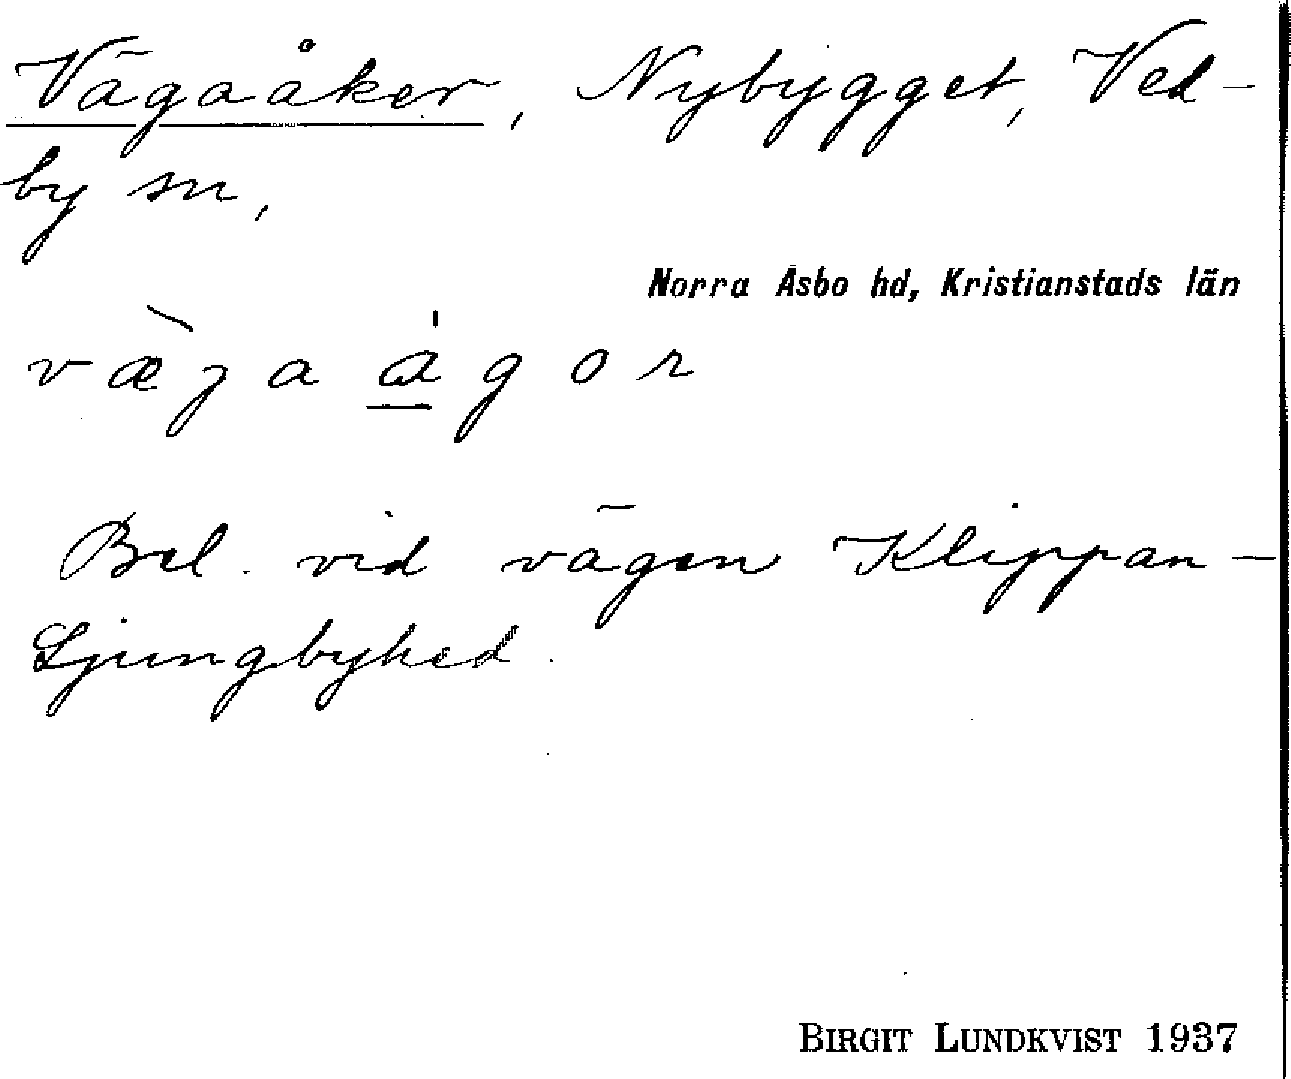 Vägaåker, Nybygget, Ved-
by sn,
Norra Åsbo hd, Kristianstads län
væ̀ja a̍gor
Bel. vid vägen Klippan-
Ljungbyhed.
BIRGIT LUNDKVIST 1937